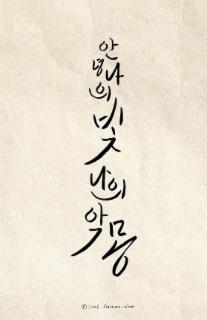 안녕 나의 빛 나의 악몽